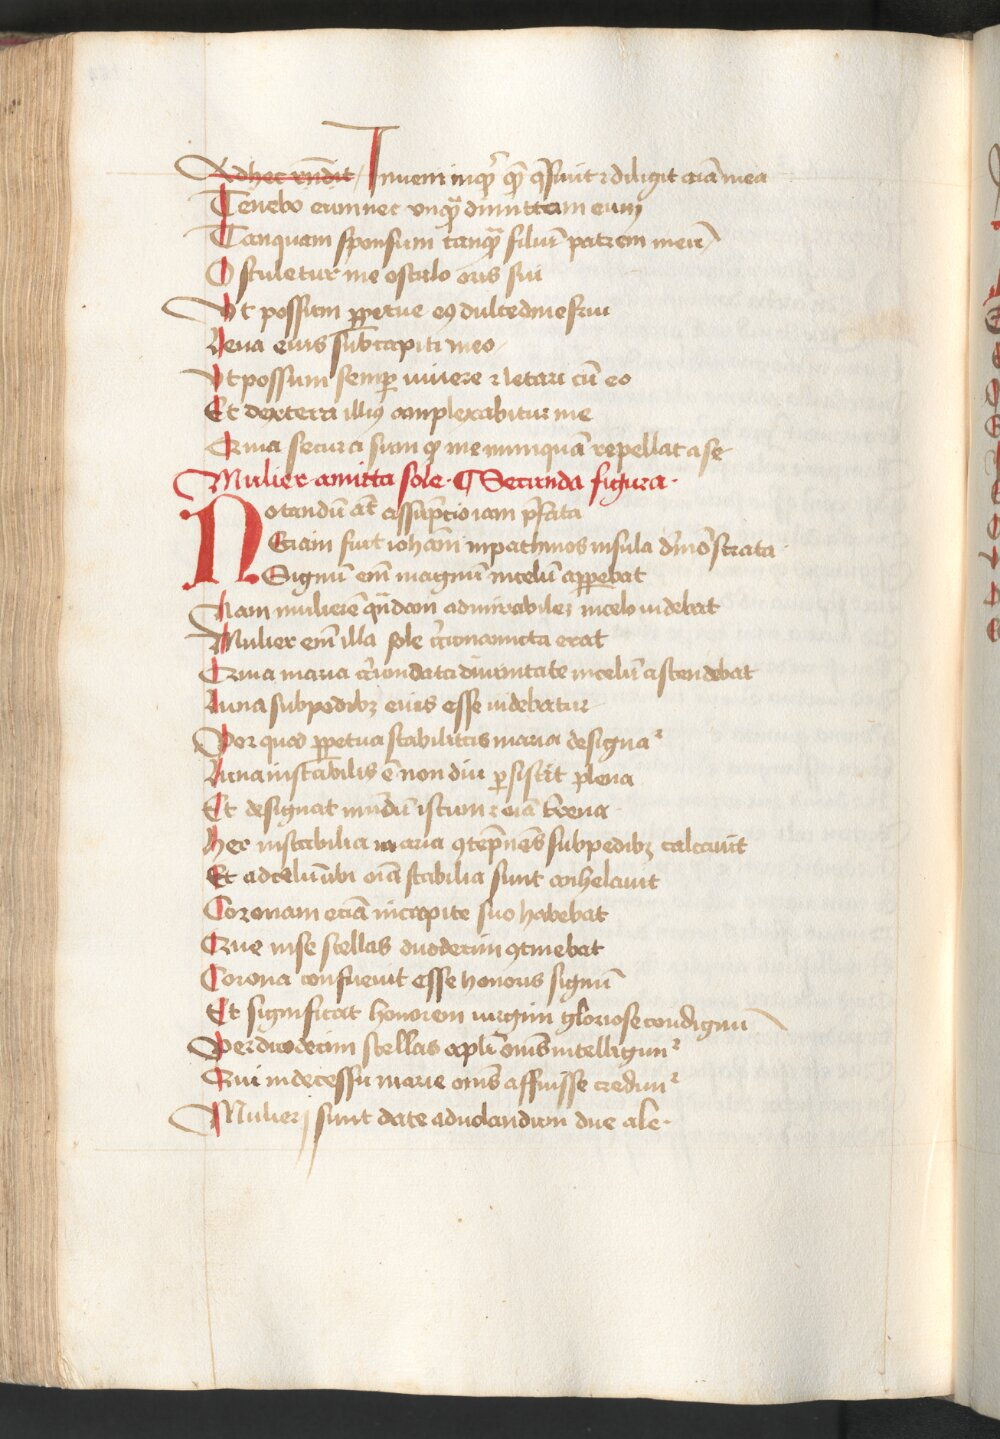 Ad hec rn̄dit Inueni inqͥt quē q̄siuit ⁊ diligit aīa mea
Tenebo eum nec vnqᷓ dimittam eum
Tanquam sponsum tanqᷓ filiū patrem meū
Osculetur me osculo oris sui
Vt possum ꝑpetue eiꝰ dulcedine frui
Leua eius sub capiti meo
Vt possum semꝑ viuere ⁊ letari cū eo
Et dextera illiꝰ amplexabitur me
Quia secura sum qͦ me nunquā repellat a se
Mulier amicta sole. ¶ Secunda figura.
Notandū aūt assūpcio iam p̄fata
Eciam fuit iohāni in pathmos insula demōstrata
Signū em̄ magnū in celū apꝑebat
Nam mulierē quādam admirabilez in celo videbat
Mulier em̄ illa sole circumamicta erat
Quia maria circūdata diuinitate in celū ascendebat
Luna sub pedibꝫ eius esse videbatur
Per quod ꝑpetua stabilitas maria designaᷣ
Luna instabilis ē non diu ꝑsistit plena
Et designat mūdū istum ⁊ oīa t̄rena
Hec instabilia maria ꝯtēpnēs sub pedibꝫ calcauit
Et ad celū vbi oīa stabilia sunt anhelauit
Coronam eciā in capite suo habebat
Que in se stellas duodecim ꝯtinebat
Corona consueuit esse honoris signū
Et significat honorem virgini gloriose condignū
Per duodecim stellas apl̄i om̄s intelligunᷣ
Qui in decessu marie om̄s affuisse credunᷣ
Mulieri sunt date ad volandum due ale.